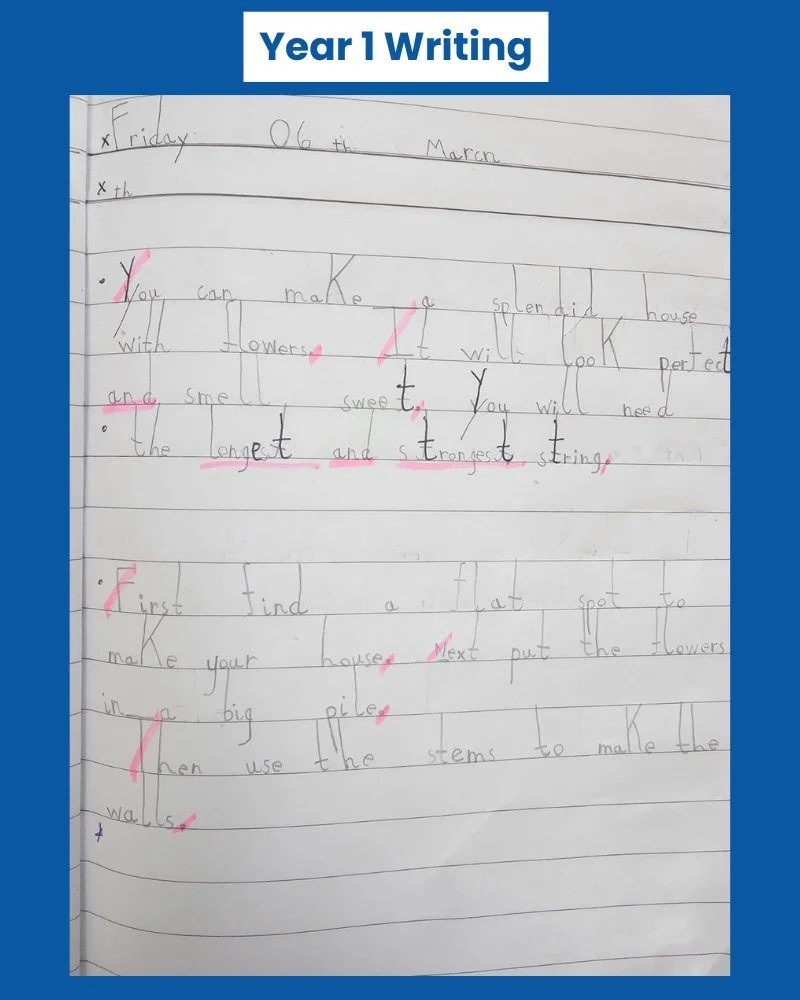 Year 1 Writing
x Friday 06 th March
x th
You can make a splendid house
with flowers. It will look perfect
and smell sweet. You will need
the longest and strongest string.
First find a flat spot to
make your house. Next put the flowers
in a big pile.
Then use the stems to make the
walls.